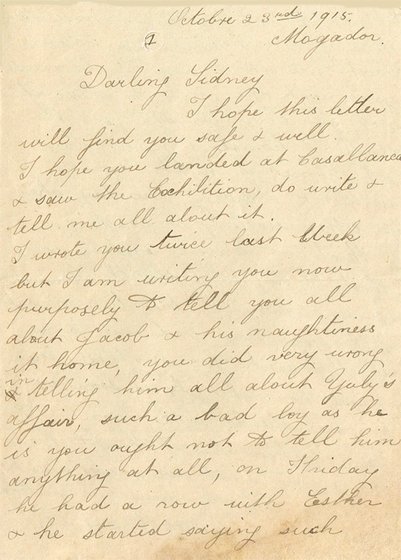 Octobre 23rd 1915.
1
Mogador.
Darling Sidney
I hope this letter
will find you safe & well.
I hope you landed at Casablanca
& saw the Exhibition, do write &
tell me all about it.
I wrote you twice last Week
but I am writing you now
purposely to tell you all
about Jacob & his naughtiness
it home, you did very wrong
in telling him all about Yuly's
affair, such a bad boy as he
is you ought not to tell him
anything at all, on Friday
he had a row with Esther
& he started saying such